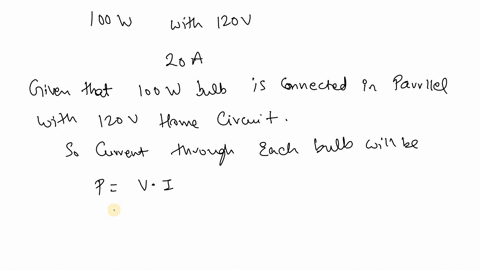 100W with 120V
20A
Given that 100W bulb is Connected in Parrllel
with 120V Home Circuit.
So Current through Each bulb will be
P = V · I